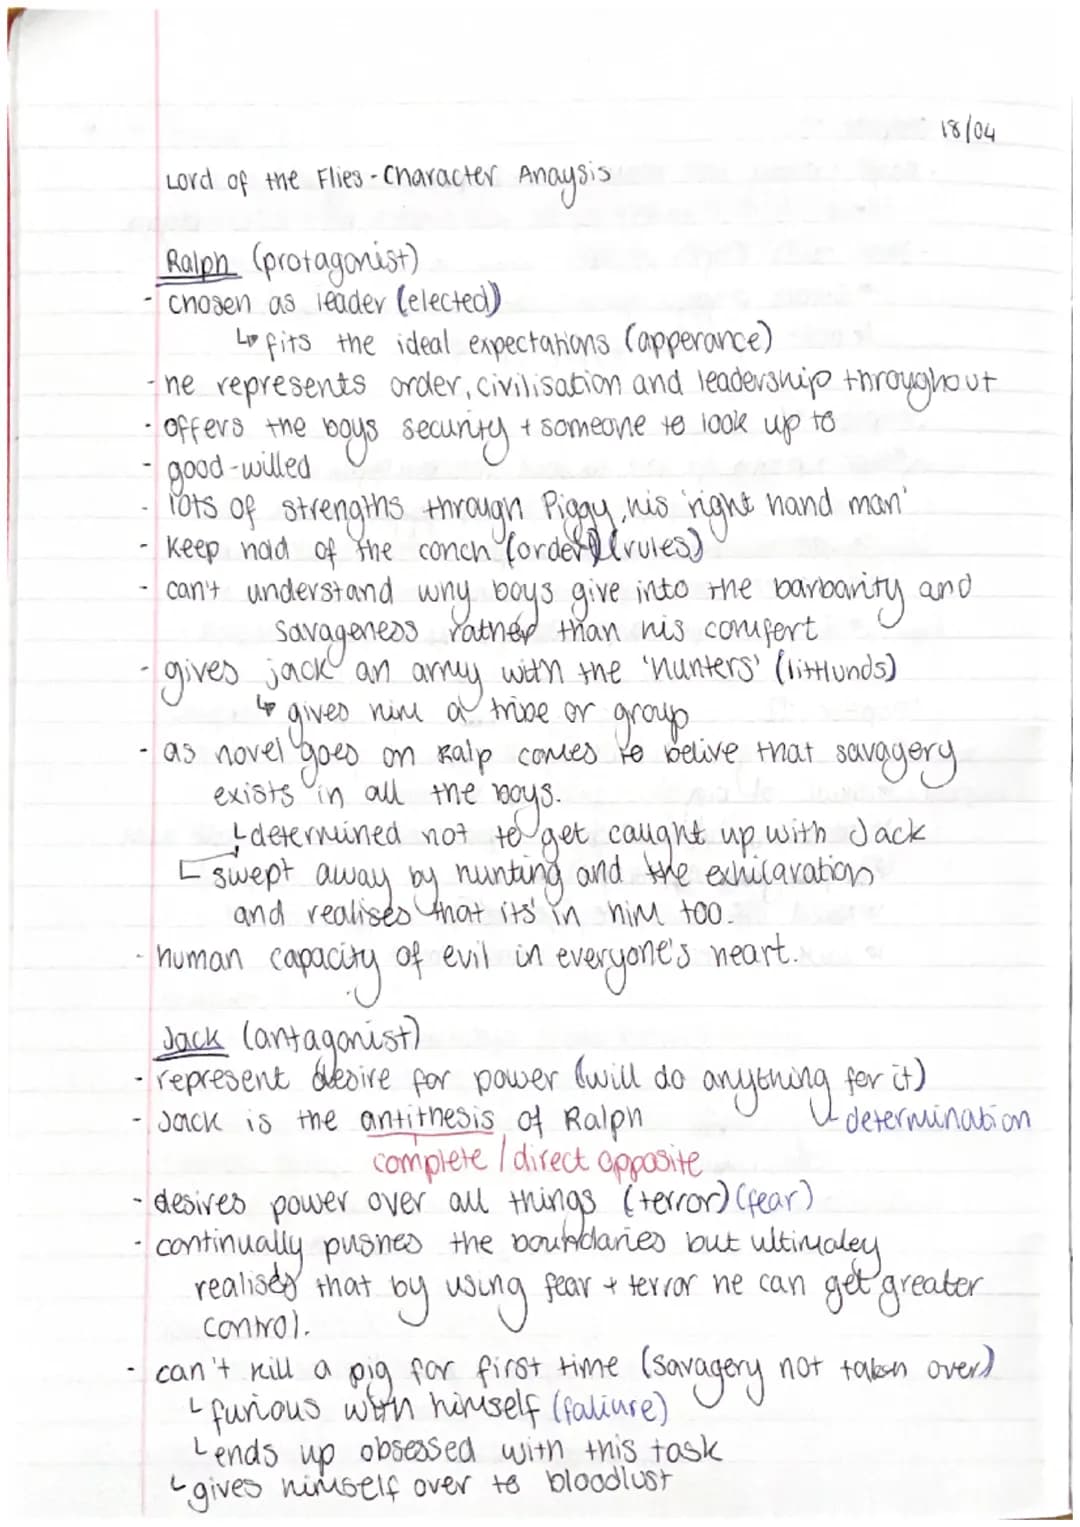 18/04
Lord of the Flies - Character Anaysis
Ralph (protagonist)
- chosen as leader (elected)
↳ fits the ideal expectations (apperance)
- he represents order, civilisation and leadership throughout
- offers the boys security + someone to look up to
- good-willed
- lots of strengths through Piggy, his 'right hand man'
- Keep hold of the conch (order) (rules)
- can't understand why boys give into the barbarity and
savageness rather than his comfert
- gives jack an army with the 'hunters' (littlunds)
↳ gives him a tribe or group
- as novel goes on Ralp comes to belive that savagery
exists in all the boys.
↳ determined not to get caught up with Jack
↳ swept away by hunting and the exhilaration
and realises that its' in him too.
- human capacity of evil in everyone's heart.
Jack (antagonist)
- represent desire for power (will do anything for it)
- Jack is the antithesis of Ralph ↳ determination
complete / direct opposite
- desires power over all things (terror) (fear)
- continually pushes the boundaries but ultimaley
realises that by using fear + terror he can get greater
control.
- can't kill a pig for first time (savagery not taken over)
↳ furious with himself (faliure)
↳ ends up obsessed with this task
↳ gives himself over to bloodlust